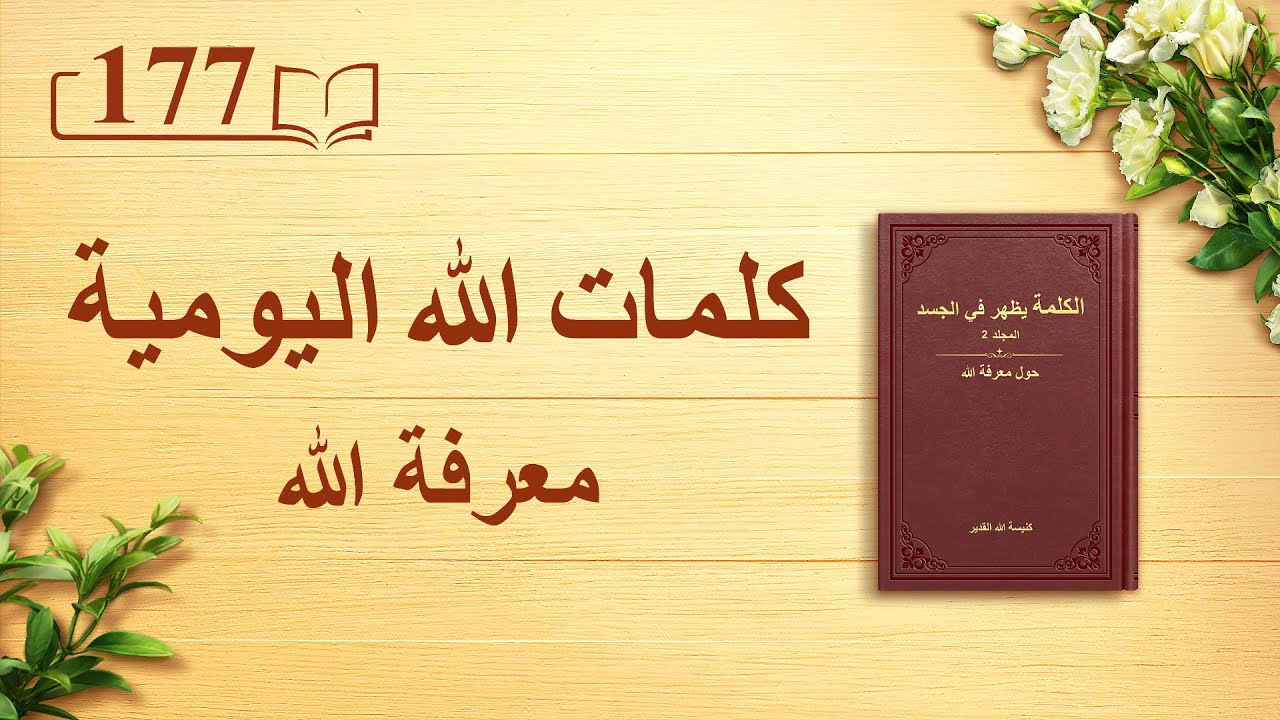 177
كلمات الله اليومية
معرفة الله
الكلمة يظهر في الجسد
المجلد 2
حول معرفة الله
كنيسة الله القدير